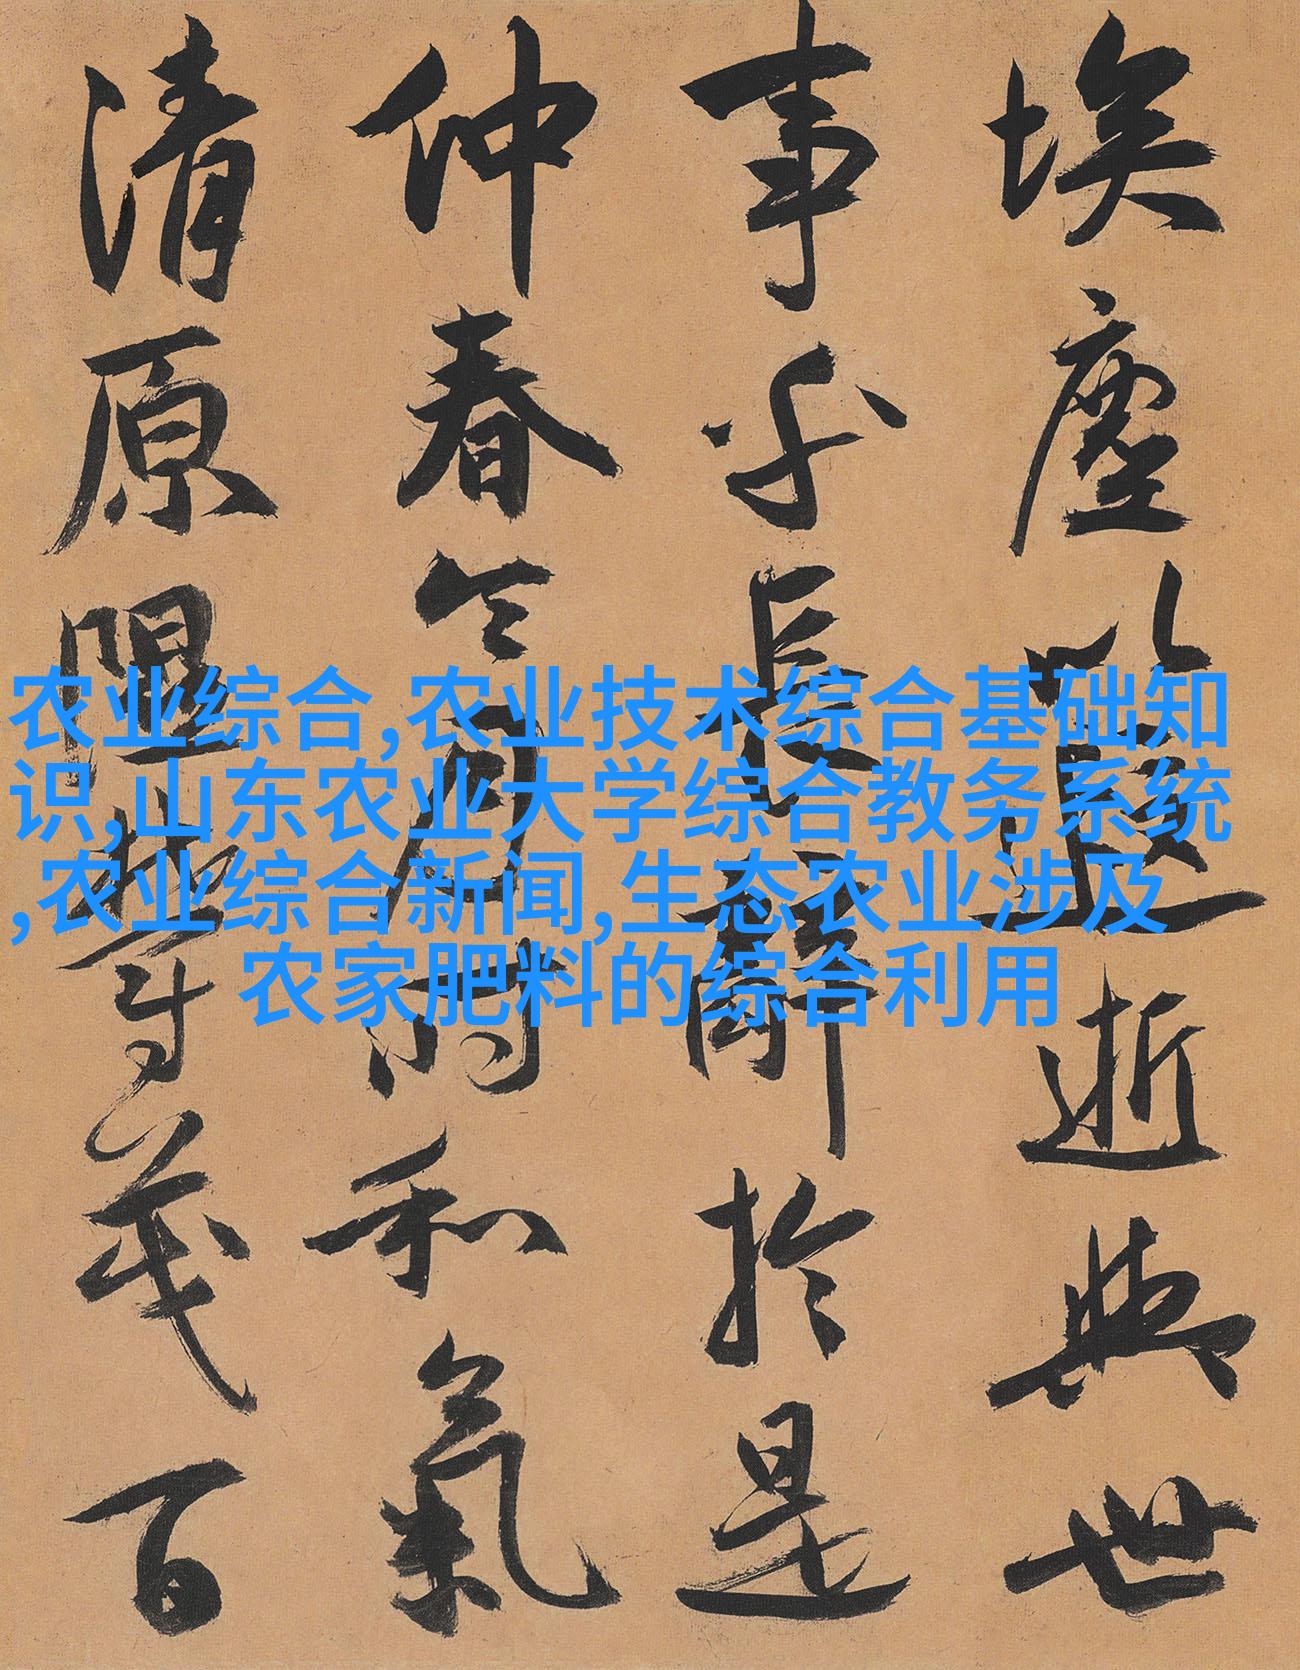 埃塵以遐逝與世
事乎長辭於是
仲春令月時和氣
清原隰鬱茂百
农业综合,农业技术综合基础知
识,山东农业大学综合教务系统
,农业综合新闻,生态农业涉及
农家肥料的综合利用